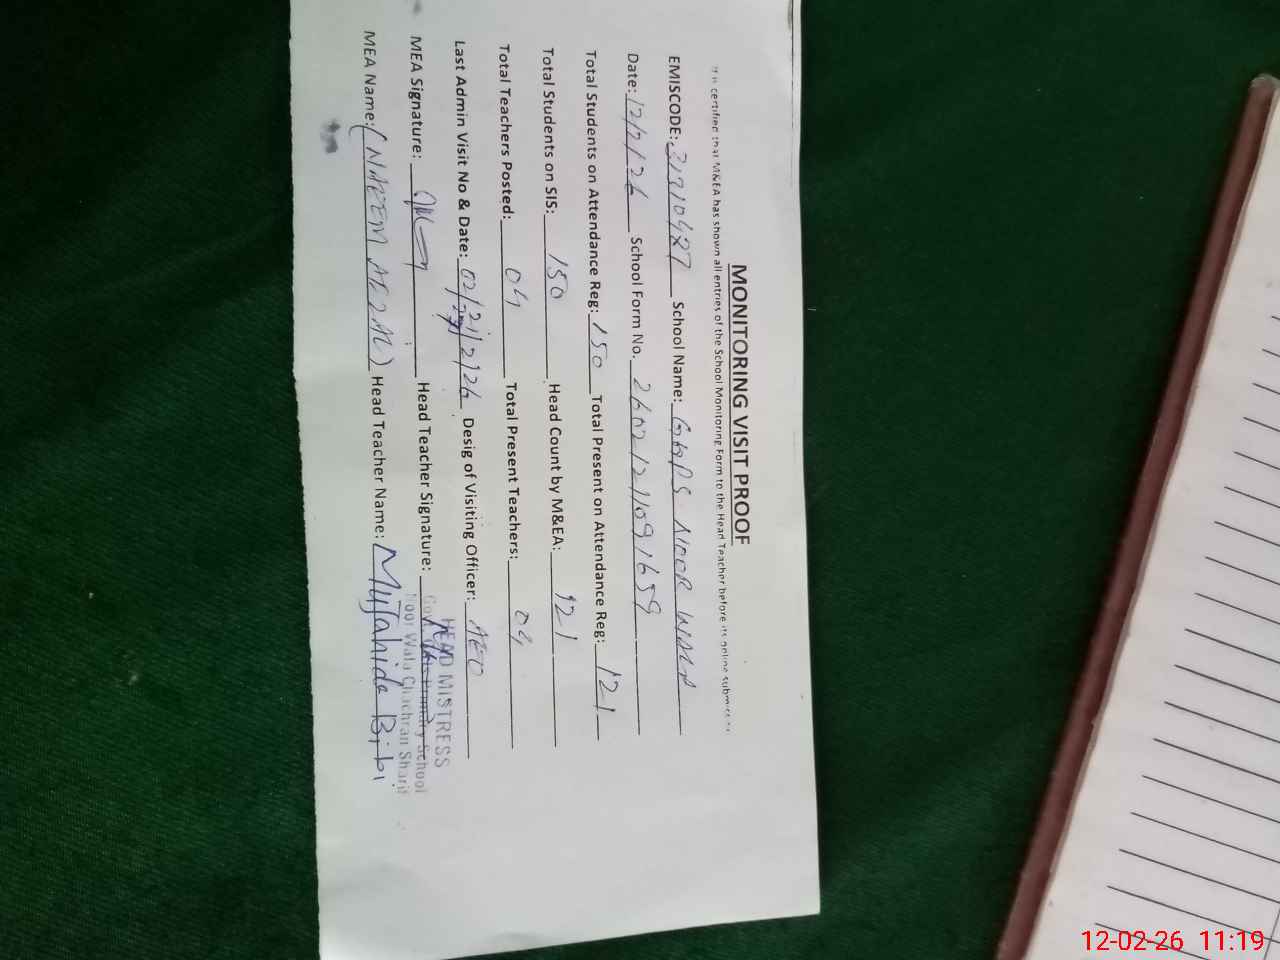 MONITORING VISIT PROOF
It is certified that M&EA has shown all entries of the School Monitoring Form to the Head Teacher before its online submission
EMISCODE: 31310487 School Name: GGPS NOOR WALA
Date: 12/2/26 School Form No. 26021211091659
Total Students on Attendance Reg: 150 Total Present on Attendance Reg: 121
Total Students on SIS: 150 Head Count by M&EA: 121
Total Teachers Posted: 04 Total Present Teachers: 04
Last Admin Visit No & Date: 02/2/2/26 Desig of Visiting Officer: AEO
MEA Signature: Head Teacher Signature:
HEAD MISTRESS
Govt. Primary School
Noor Wala Chachran Sharif
MEA Name: (NAEEM AFZAL) Head Teacher Name: Mujahida Bibi
12-02-26 11:19